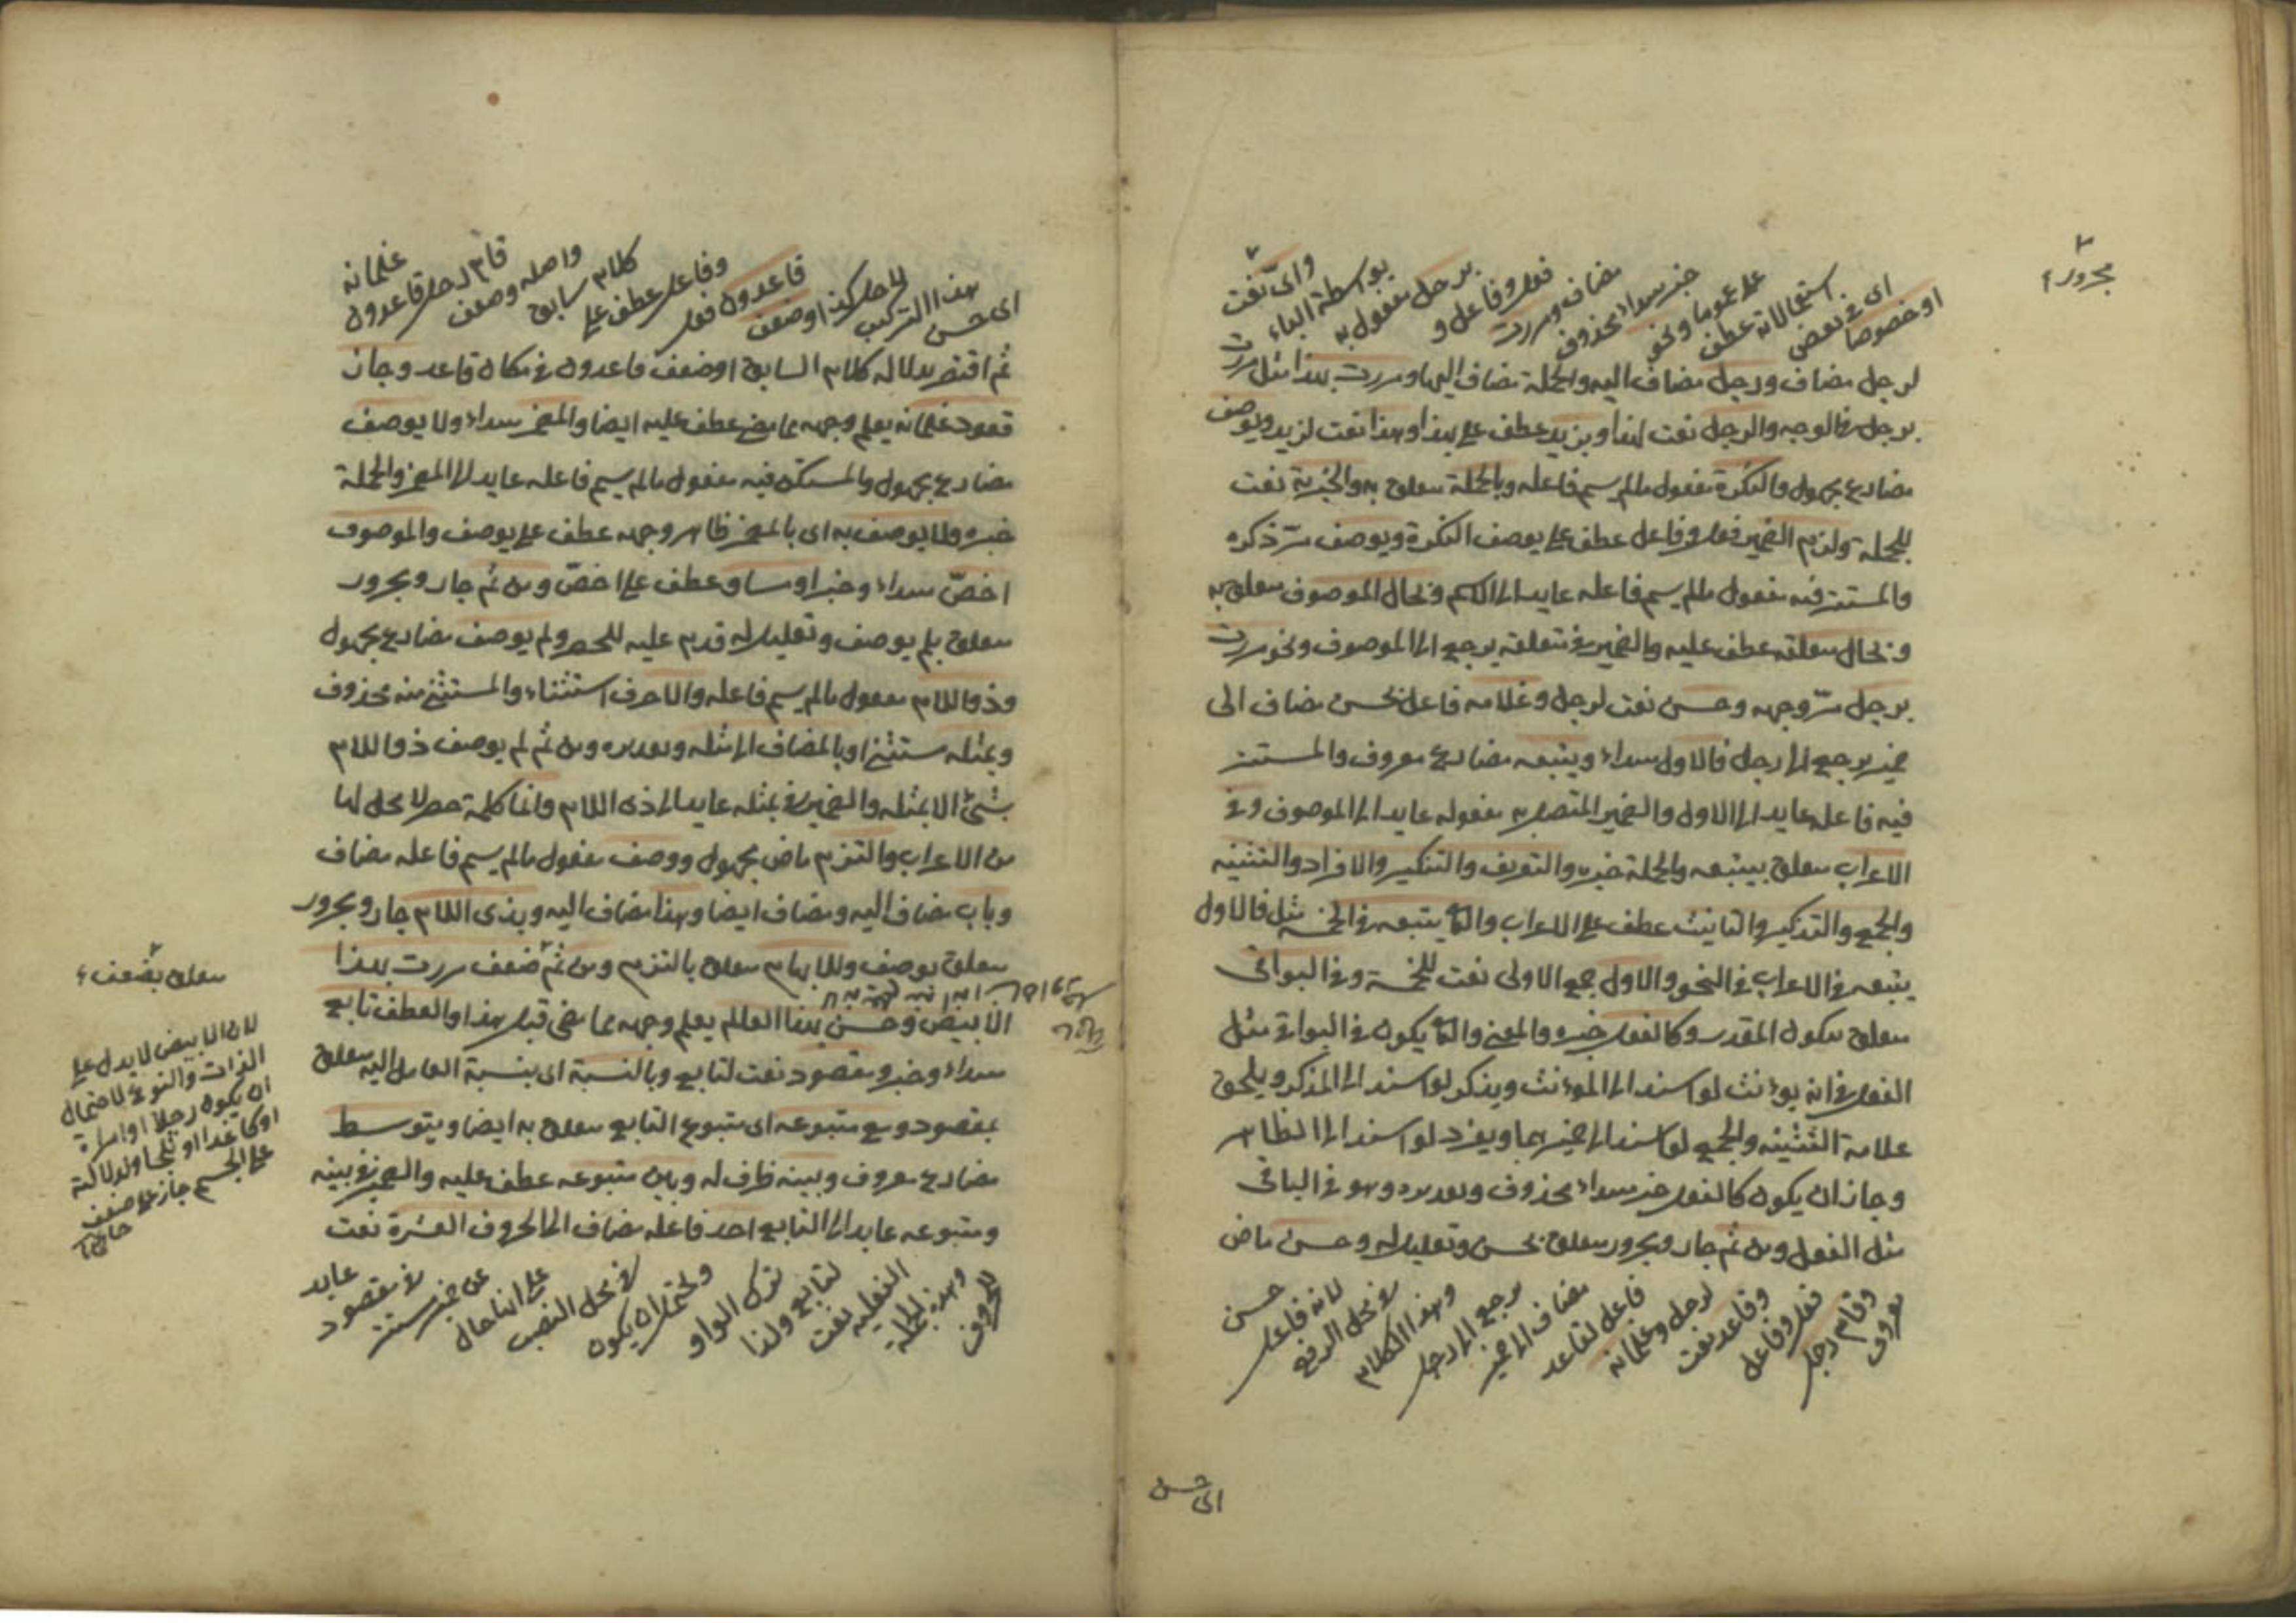 مجرور ٢
او خصوصا
اى فى بعض
استعمالاته عطف
على عموما ونحو
خبر مبتداء محذوف
مضاف ومررت
فعل وفاعل و
برجل مفعول به
بواسطة الباء
واىّ نعت
لرجل مضاف ورجل مضاف اليه والجملة مضاف اليها ومررت بهذا مثل مررت
برجل فالوجه والرجل نعت لهذا وبزيد عطف على بهذا وهذا نعت لزيد ويوصف
مضارع مجهول والنكرة مفعول مالم يسم فاعله وبالجملة متعلق به والخبرية نعت
للجملة ولزم الضمير فعل وفاعل عطف على يوصف النكرة ويوصف مرّ ذكره
والمستتر فيه مفعول مالم يسم فاعله عايد الى الاسم وبحال الموصوف متعلق به
وبحال متعلقه عطف عليه والضمير فى متعلقه يرجع الى الموصوف ونحو مررت
برجل مرّ وجهه وحسن نعت لرجل وغلامه فاعل لحسن مضاف الى
ضمير يرجع الى رجل فالاول مبتداء ويتبعه مضارع معروف والمستتر
فيه فاعله عايد الى الاول والضمير المتصل به مفعوله عايد الى الموصوف وفى
الاعراب متعلق بيتبعه والجملة خبره والتعريف والتنكير والافراد والتثنيه
والجمع والتذكير والتانيث عطف على الاعراب والثانى يتبعه فى الخمسة مثل فالاول
يتبعه فى الاعراب فى النحو والاول جمع الاولى نعت للخمسة وفى البواقى
متعلق بيكون المقدر وكالفعل خبره والمعنى والثانى يكون فى البواقى مثل
الفعل فى انه يؤنث لو اسند الى المؤنث ويذكر لو اسند الى المذكر ويلحق
علامة التثنيه والجمع لو اسند الى ضميرهما ويفرد لو اسند الى الظاهر
وجاز ان يكون كالفعل خبر مبتداء محذوف وتقديره وهو فى الباقى
مثل الفعل ومن ثم جار ومجرور متعلق بحسن وتعليل له وحسن ماض
معروف
وقام رجل
فعل وفاعل
وقاعد نعت
لرجل وغلمانه
فاعل لقاعد
مضاف الى ضمير
يرجع الى رجل
وهذا الكلام
فى محل الرفع
لانه فاعل
حسن
اى حسن
اى حسن
هذا التركيب
قاعدون فعل
وفاعل عطف على
كلام سابق
واصله وضعف
قام رجل قاعدون
غلمانه
ثم اقتصر بدلالة كلام السابق او ضعف قاعدون فى مكان قاعد وجاز
قعود غلمانه يعلم وجهه مما مضى عطف عليه ايضا والمضمر مبتداء ولا يوصف
مضارع مجهول والمستكن فيه مفعول مالم يسم فاعله عايد الى المضمر والجملة
خبره ولا يوصف به اى بالمضمر ظاهر وجهه عطف على يوصف والموصوف
اخصّ مبتداء وخبر او مساو عطف على اخصّ ومن ثم جار ومجرور
متعلق بلم يوصف وتعليل له قدم عليه للحصر ولم يوصف مضارع مجهول
وذو اللام مفعول مالم يسم فاعله والا حرف استثناء والمستثنى منه محذوف
وبمثله مستثنى او بالمضاف الى مثله وتقديره ومن ثم لم يوصف ذو اللام
بشئ الا بمثله والضمير فى بمثله عايد الى ذى اللام وانما كلمة حصر لا محل لها
من الاعراب والتزم ماض مجهول ووصف مفعول مالم يسم فاعله مضاف
وباب مضاف اليه ومضاف ايضا وهذا مضاف اليه وبذى اللام جار ومجرور
متعلق بوصف وللابهام متعلق بالتزم ومن ثم ضعف مررت بهذا
الابيض وحسن بهذا العالم يعلم وجهه مما مضى قبل هذا والعطف تابع
مبتداء وخبر ومقصود نعت لتابع وبالنسبة اى بنسبة العامل اليه متعلق
بمقصود ومع متبوعه اى متبوع التابع متعلق به ايضا ويتوسط
مضارع معروف وبينه ظرف له وبين متبوعه عطف عليه والضمير فى بينه
ومتبوعه عايد الى التابع احد فاعله مضاف الى الحروف العشرة نعت
للحروف
وهذه الجملة
الفعليه نعت
لتابع ولذا
ترك الواو
ويحتمل ان يكون
فى محل النصب
على انها حال
عن ضمير مستتر
فى مقصود
عايد
متعلق بضعف
لان الابيض لا يدل على
الذات والنوع لاحتمال
ان يكون رجلا او امراة
او كاغدا او ثلجا ولدلالته
على الجسم جاز على ضعف